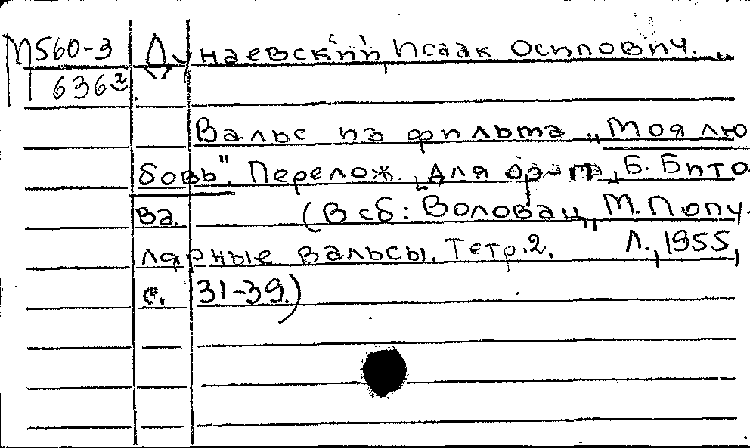 М560-3 Дунаевский, Исаак Осипович.
6362
Вальс из фильма „Моя лю
бовь". Перелож. для орк-та Б. Бито
ва. (В сб: Воловац, М. Попу-
лярные вальсы. Тетр.2. Л., 1955,
с. 31-39.)